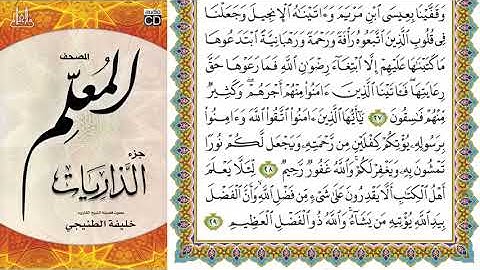 وَقَفَّيْنَا بِعِيسَى ٱبْنِ مَرْيَمَ وَءَاتَيْنَٰهُ ٱلْإِنجِيلَ وَجَعَلْنَا
فِى قُلُوبِ ٱلَّذِينَ ٱتَّبَعُوهُ رَأْفَةً وَرَحْمَةً وَرَهْبَانِيَّةً ٱبْتَدَعُوهَا
مَا كَتَبْنَٰهَا عَلَيْهِمْ إِلَّا ٱبْتِغَآءَ رِضْوَٰنِ ٱللَّهِ فَمَا رَعَوْهَا حَقَّ
رِعَايَتِهَا فَـَٔاتَيْنَا ٱلَّذِينَ ءَامَنُوا۟ مِنْهُمْ أَجْرَهُمْ وَكَثِيرٌ
مِّنْهُمْ فَٰسِقُونَ ٢٧ يَٰٓأَيُّهَا ٱلَّذِينَ ءَامَنُوا۟ ٱتَّقُوا۟ ٱللَّهَ وَءَامِنُوا۟
بِرَسُولِهِۦ يُؤْتِكُمْ كِفْلَيْنِ مِن رَّحْمَتِهِۦ وَيَجْعَل لَّكُمْ نُورًا
تَمْشُونَ بِهِۦ وَيَغْفِرْ لَكُمْ وَٱللَّهُ غَفُورٌ رَّحِيمٌ ٢٨ لِّئَلَّا يَعْلَمَ
أَهْلُ ٱلْكِتَٰبِ أَلَّا يَقْدِرُونَ عَلَىٰ شَىْءٍ مِّن فَضْلِ ٱللَّهِ وَأَنَّ ٱلْفَضْلَ
بِيَدِ ٱللَّهِ يُؤْتِيهِ مَن يَشَآءُ وَٱللَّهُ ذُو ٱلْفَضْلِ ٱلْعَظِيمِ ٢٩
CD
المصحف
المعلم
جزء
الذاريات
بصوت فضيلة الشيخ القارئ
خليفة الطنيجي